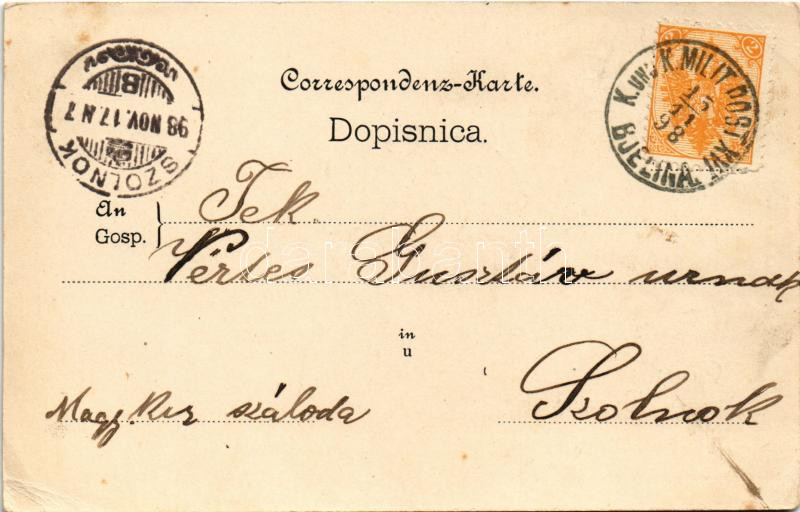 Correspondenz-Karte.
Dopisnica.
SZOLNOK
98 NOV. 17. N 7
B
K. UND K. MILIT. POST
BJELINA.
15
11
98
2
2
An
Gosp.
Tek.
Vértes Gusztáv urnak
in
u
Szolnok
Magy. Kir szálloda
darabanth